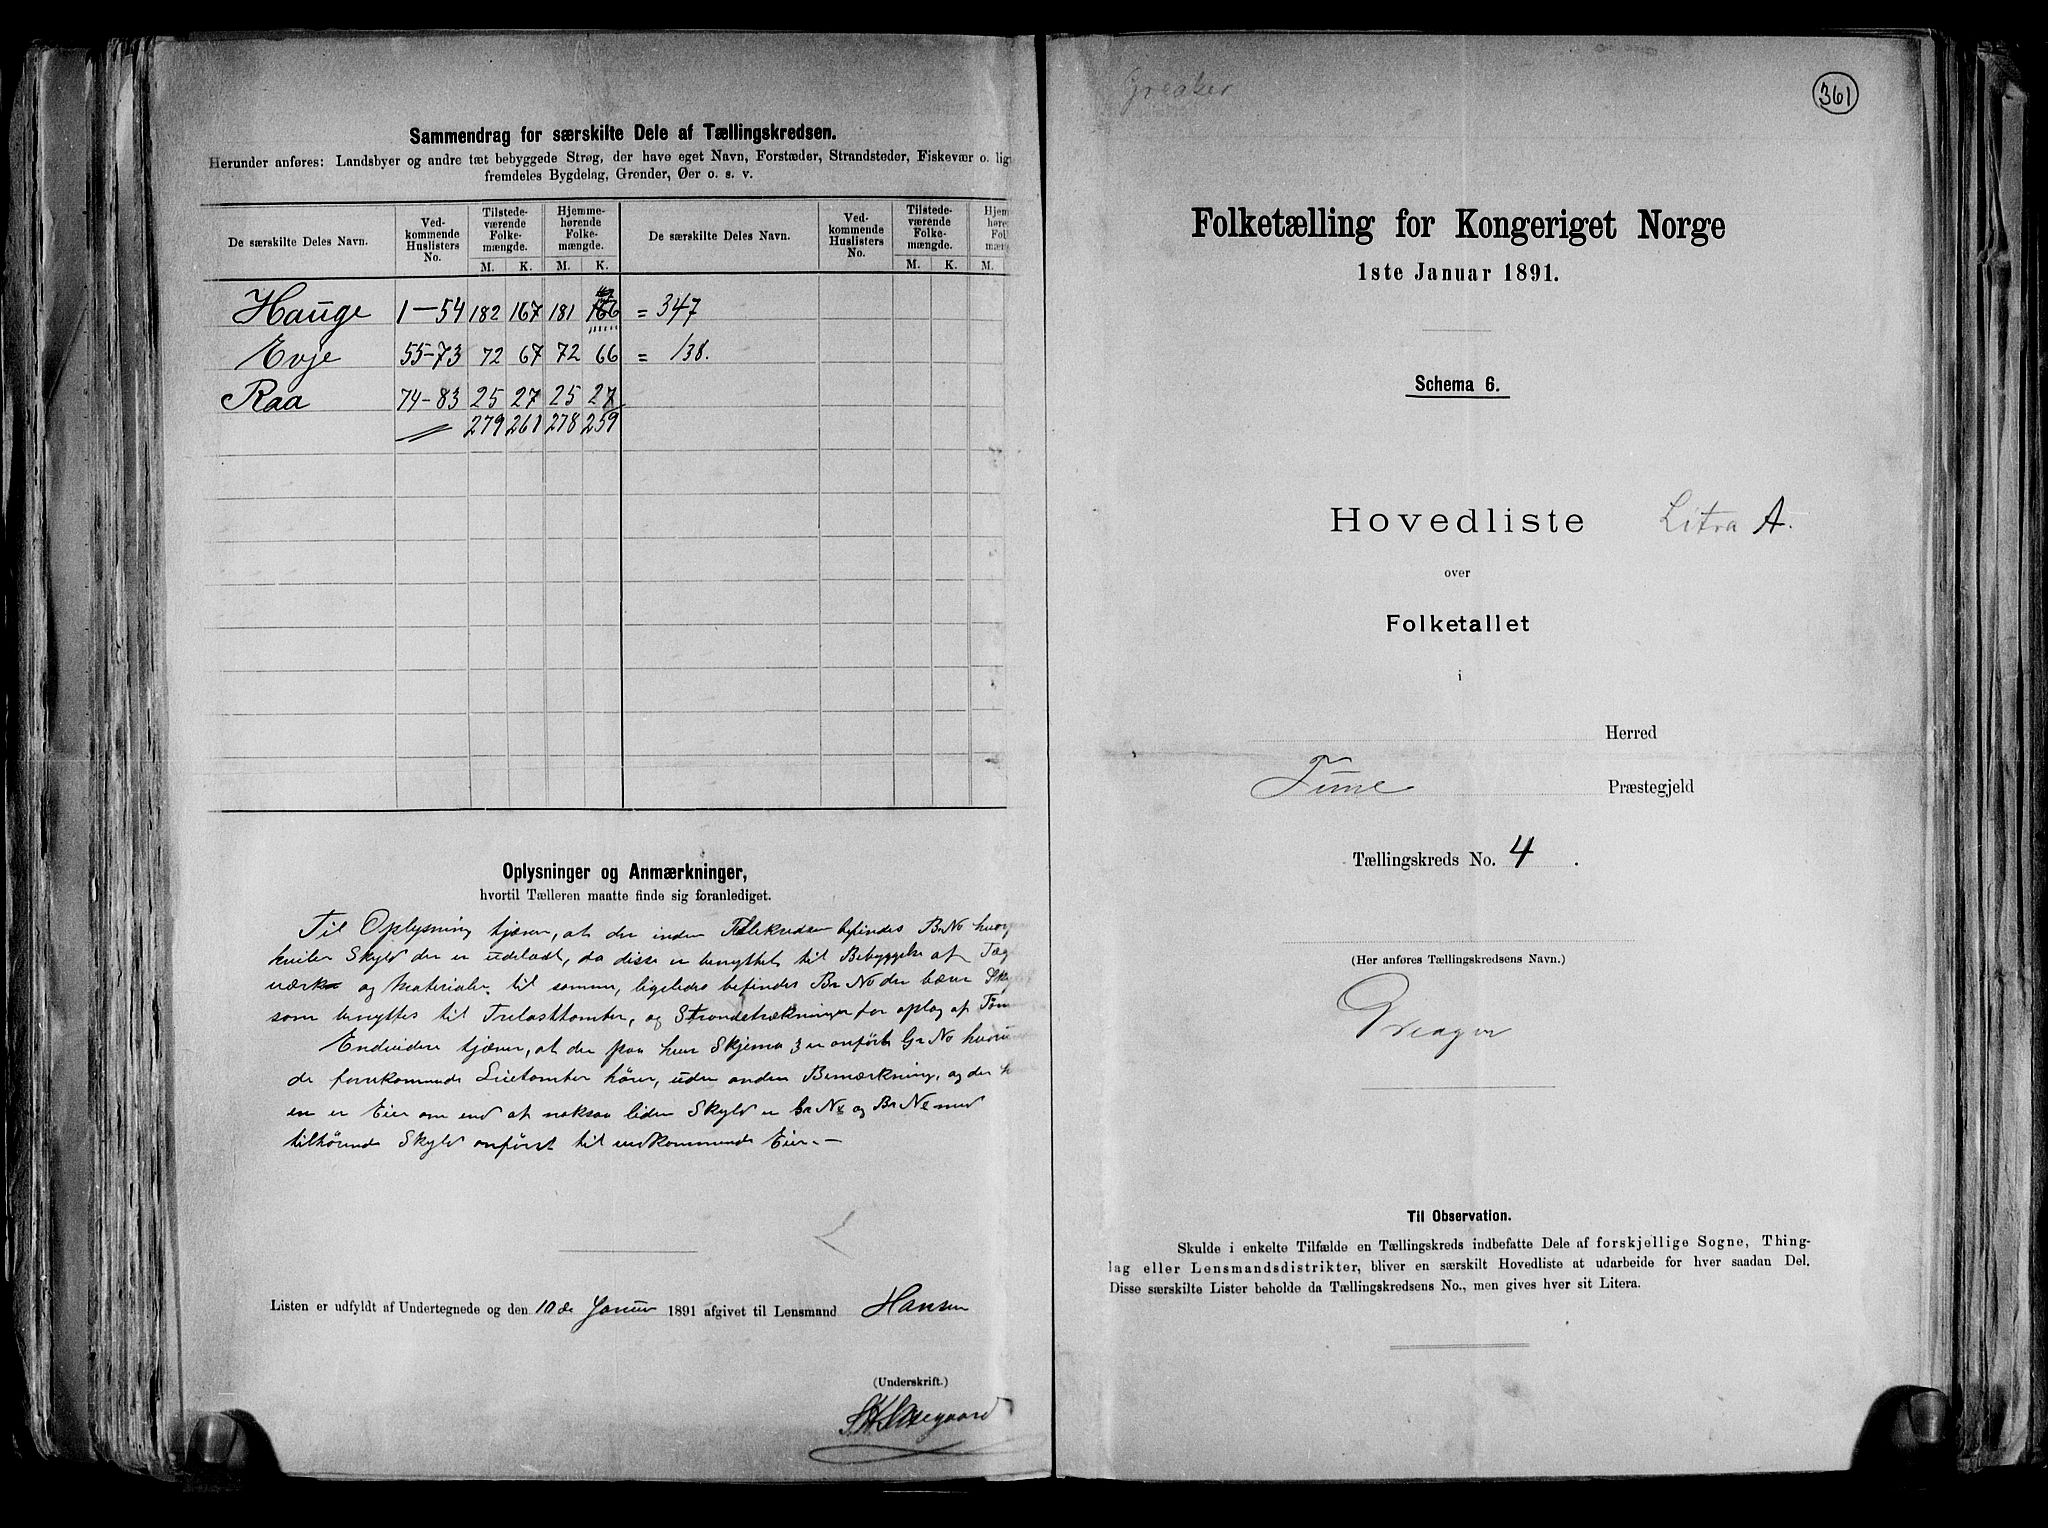 Sammendrag for særskilte Dele af Tællingskredsen.
Herunder anføres: Landsbyer og andre tæt bebyggede Strøg, der have eget Navn, Forstæder, Strandsteder, Fiskevær o. lig
fremdeles Bygdelag, Grender, Øer o. s. v.
De særskilte Deles Navn. Ved-kommende Huslisters No. Tilstede-værende Folke-mængde. Hjemme-hørende Folke-mængde. De særskilte Deles Navn. Ved-kommende Huslisters No. Tilstede-værende Folke-mængde. Hjem hør Fol mæng
M. K. M. K. M. K. M.
Hauge 1-54 182 167 181 166 = 347
Evje 55-73 72 67 72 66 = 138.
Raa 74-83 25 27 25 27
279 261 278 259
Oplysninger og Anmærkninger,
hvortil Tælleren maatte finde sig foranlediget.
Til Oplysning tjæner, at der inden befindes BrNo
Skyld der er udeladt, da disse er benyttet til Bebyggelse af
og Materialer til samme, ligeledes befindes BrNo der bærer
som benyttes til Trelasttomter, og Strandstrækninger for oplag af
Endvidere tjæner, at der paa hver Skjema 3 er anført GrNo
de forekommende hører, uden anden Bemærkning, og der
en er Eier om end af noksaa liden Skyld er GrNo og BrNo med
tilhørende Skyld anført til vedkommende Eier. —
Listen er udfyldt af Undertegnede og den 10de Januar 1891 afgivet til Lensmand Hansen
(Underskrift.)
Greaker
361
Folketælling for Kongeriget Norge
1ste Januar 1891.
Schema 6.
Hovedliste Litra A.
over
Folketallet
i
Herred
Tune Præstegjeld
Tællingskreds No. 4.
(Her anføres Tællingskredsens Navn.)
Greager
Til Observation.
Skulde i enkelte Tilfælde en Tællingskreds indbefatte Dele af forskjellige Sogne, Thing-
lag eller Lensmandsdistrikter, bliver en særskilt Hovedliste at udarbeide for hver saadan Del.
Disse særskilte Lister beholde da Tællingskredsens No., men gives hver sit Litera.